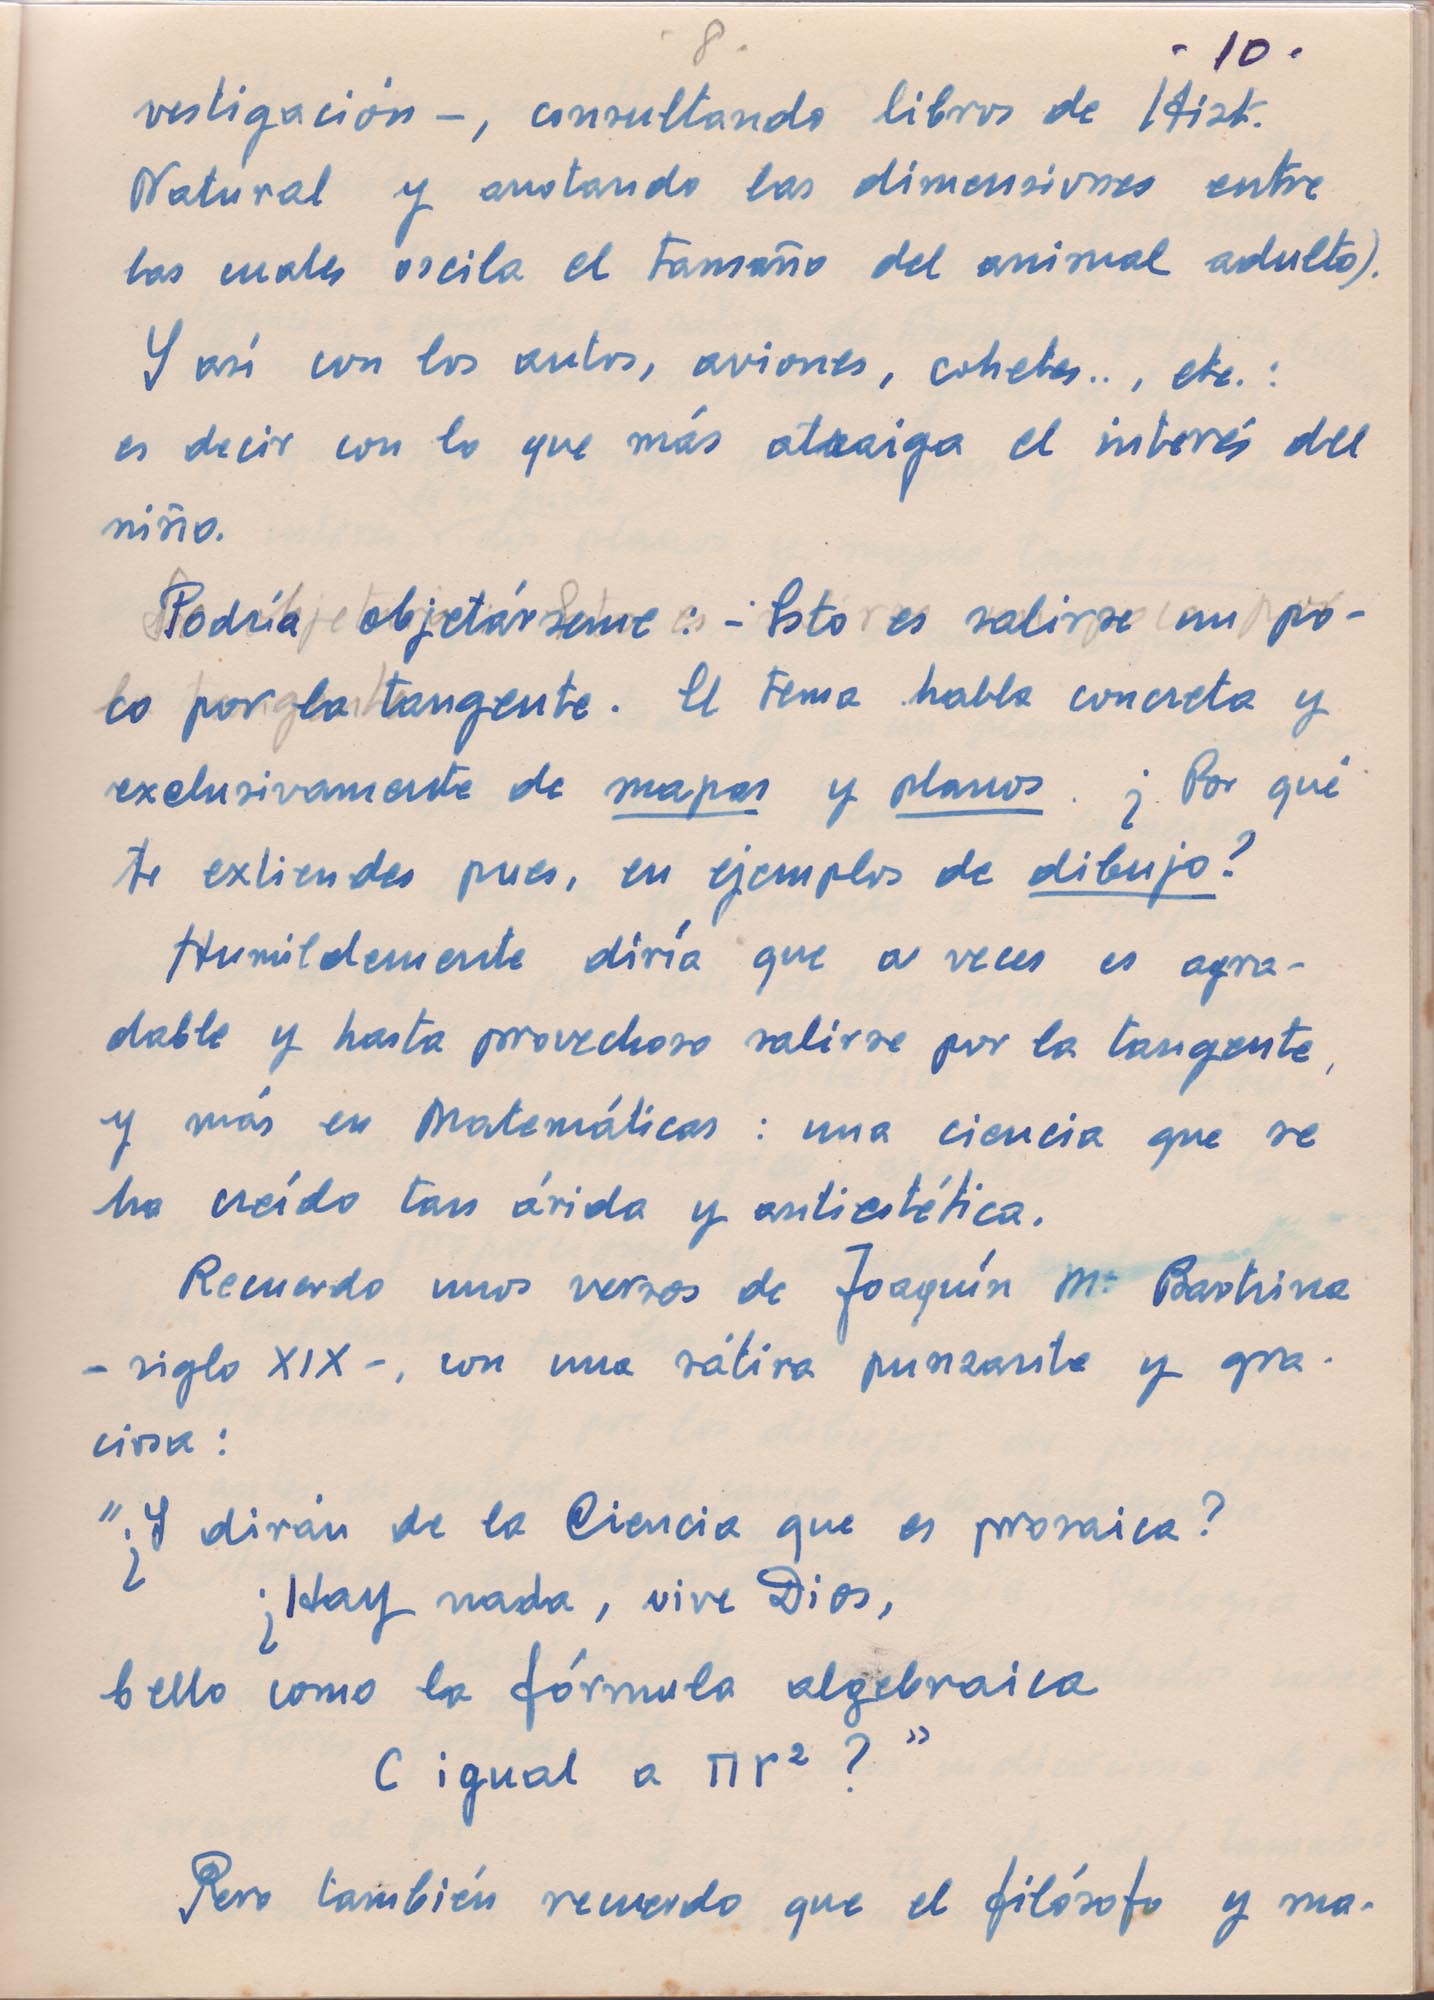 8.
- 10.
vestigación -, consultando libros de Hist.
Natural y anotando las dimensiones entre
las cuales oscila el tamaño del animal adulto).
Y así con los autos, aviones, cohetes.., etc.:
es decir con lo que más atraiga el interés del
niño.
Podría objetárseme: - Esto es salirse un po-
co por la tangente. El tema habla concreta y
exclusivamente de mapas y planos. ¿Por qué
te extiendes pues, en ejemplos de dibujo?
Humildemente diría que a veces es agra-
dable y hasta provechoso salirse por la tangente,
y más en Matemáticas: una ciencia que se
ha creído tan árida y antiestética.
Recuerdo unos versos de Joaquín Mª Bartrina
- siglo XIX -, con una sátira punzante y gra-
ciosa:
"¿Y dirán de la Ciencia que es prosaica?
¿Hay nada, vive Dios,
bello como la fórmula algebraica
C igual a πr²?"
Pero también recuerdo que el filósofo y ma-